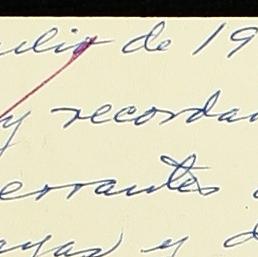 ulio de 19
y recordan
errantes
ayas y d